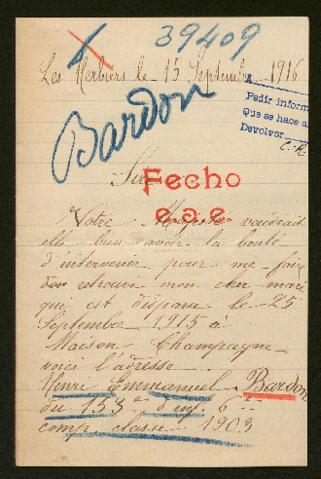 39409
Les Herbiers le 15 Septembre 1916
Pedir inform
Que se hace a
Devolver
C.R.
Bardon
Sire
Fecho
e.a.e.
Votre Majesté voudrait
elle bien avoir la bonté
d'intervenir pour me faire
retrouver mon cher mari
qui est disparu le 25
Septembre 1915 à
Maison Champagne
voici l'adresse
Henri Emmanuel Bardon
du 153 d'inf. 6
comp classe 1903